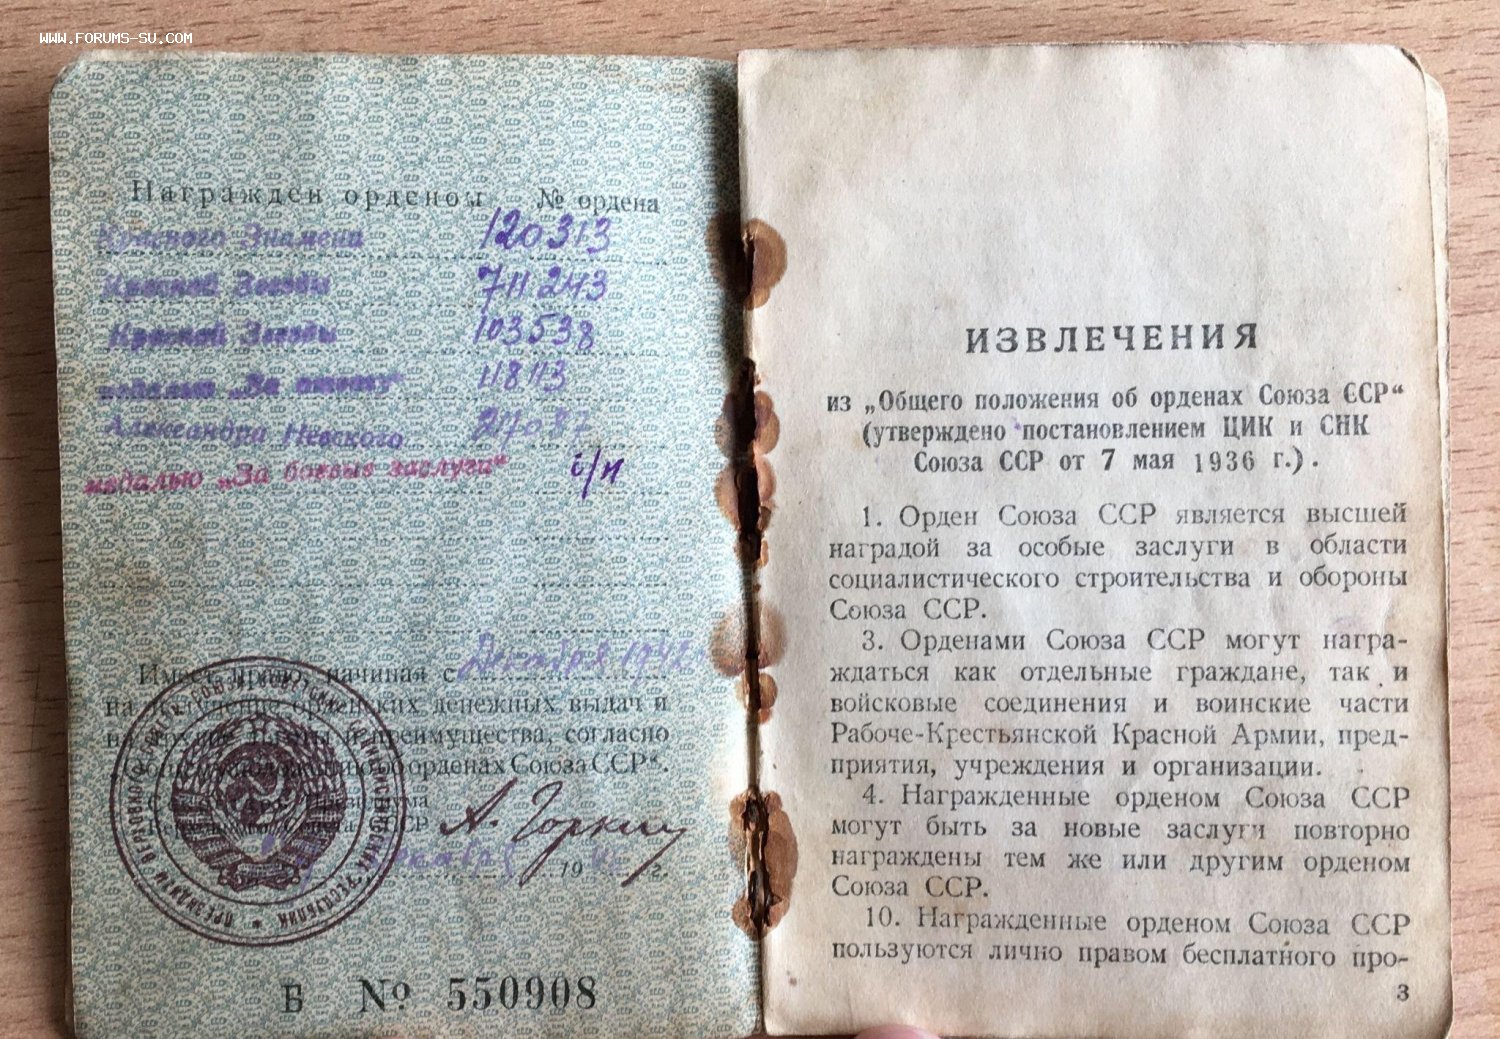 WWW.FORUMS-SU.COM
Награжден орденом № ордена
Красного Знамени 120313
Красной Звезды 711243
Красной Звезды 103538
медалью „За отвагу“ 11813
Александра Невского 27087
медалью „За боевые заслуги“ б/н
Имеет право, начиная с Декабря 1942
на получение орденских денежных выдач и
преимущества, согласно
орденах Союза ССР“.
Президиума
ССР А. Горкин
19 г.
Б № 550908
ИЗВЛЕЧЕНИЯ
из „Общего положения об орденах Союза ССР“
(утверждено постановлением ЦИК и СНК
Союза ССР от 7 мая 1936 г.).
1. Орден Союза ССР является высшей
наградой за особые заслуги в области
социалистического строительства и обороны
Союза ССР.
3. Орденами Союза ССР могут награ-
ждаться как отдельные граждане, так и
войсковые соединения и воинские части
Рабоче-Крестьянской Красной Армии, пред-
приятия, учреждения и организации.
4. Награжденные орденом Союза ССР
могут быть за новые заслуги повторно
награждены тем же или другим орденом
Союза ССР.
10. Награжденные орденом Союза ССР
пользуются лично правом бесплатного про-
3